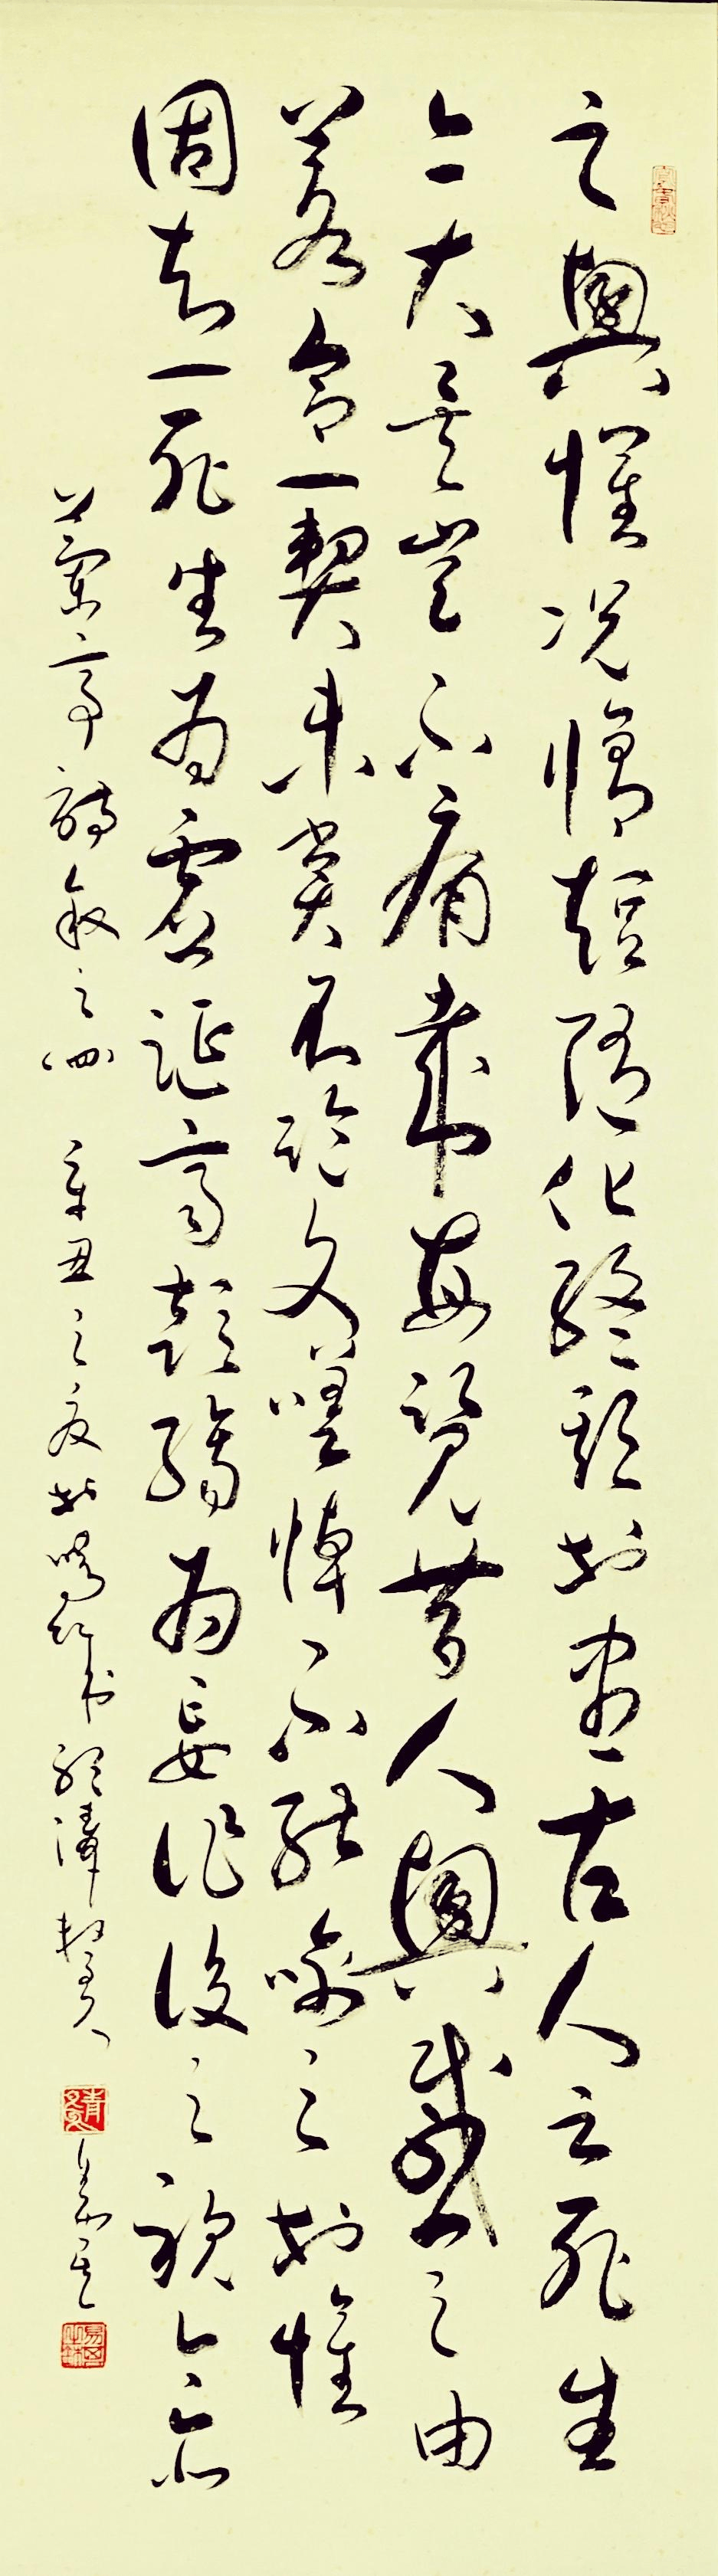 之興懷況脩短隨化終期於盡古人云死生
亦大矣豈不痛哉每覽昔人興感之由
若合一契未嘗不臨文嗟悼不能喻之於懷
固知一死生為虛誕齊彭殤為妄作後之視今亦
蘭亭詩敘之四 辛丑之夏於